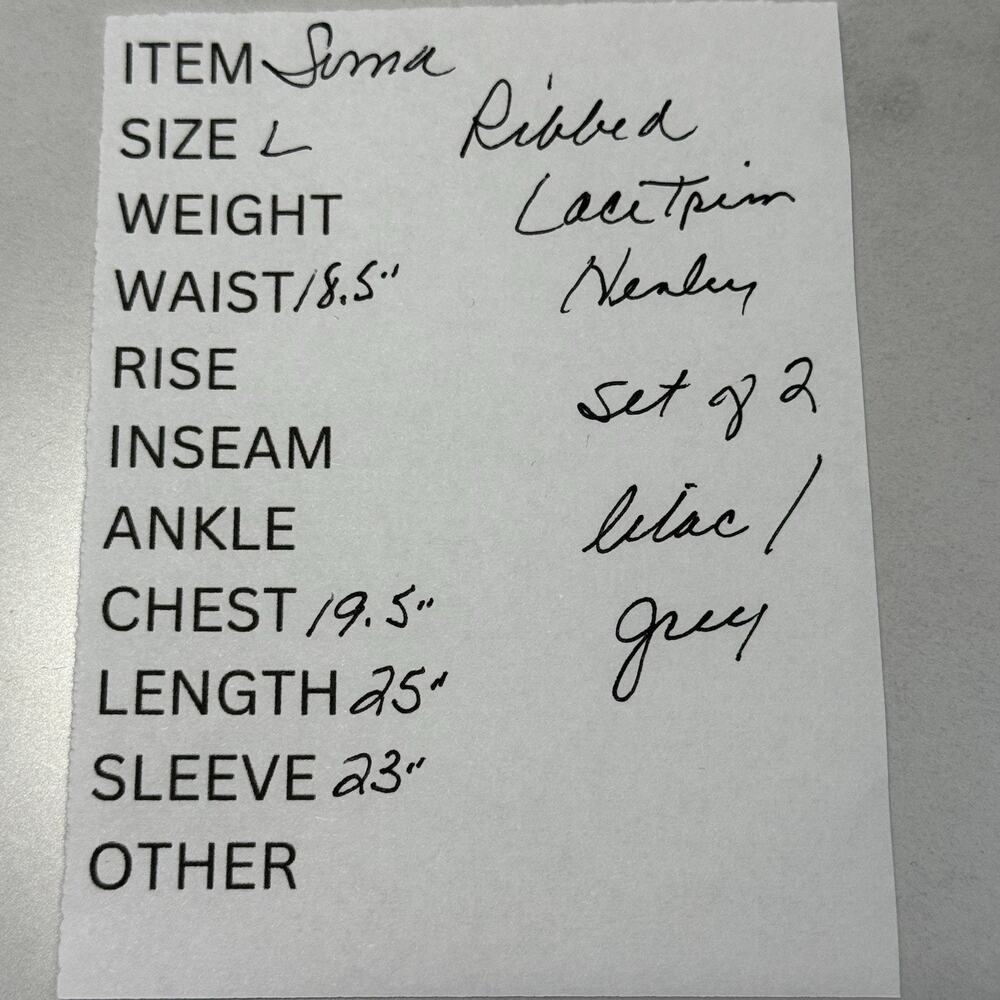 ITEM Soma
SIZE L
Ribbed
WEIGHT
Lace Trim
WAIST 18.5"
Henley
RISE
set of 2
INSEAM
ANKLE
lilac /
CHEST 19.5"
grey
LENGTH 25"
SLEEVE 23"
OTHER